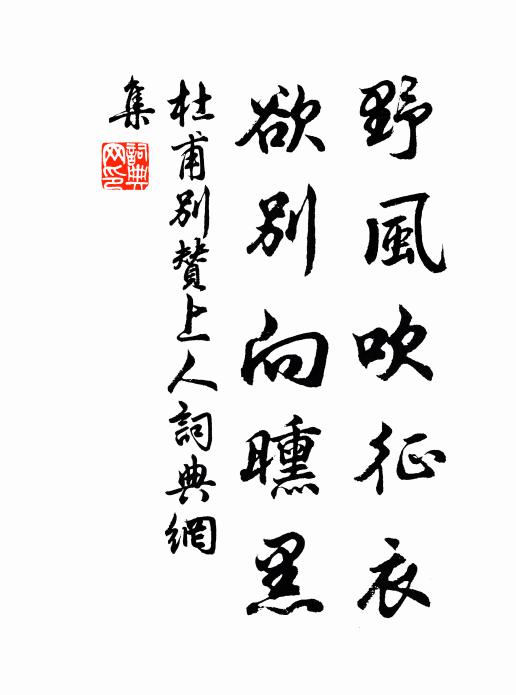 野風吹征衣
欲別向曛黑
杜甫別贊上人詞典網
集
詞典網印